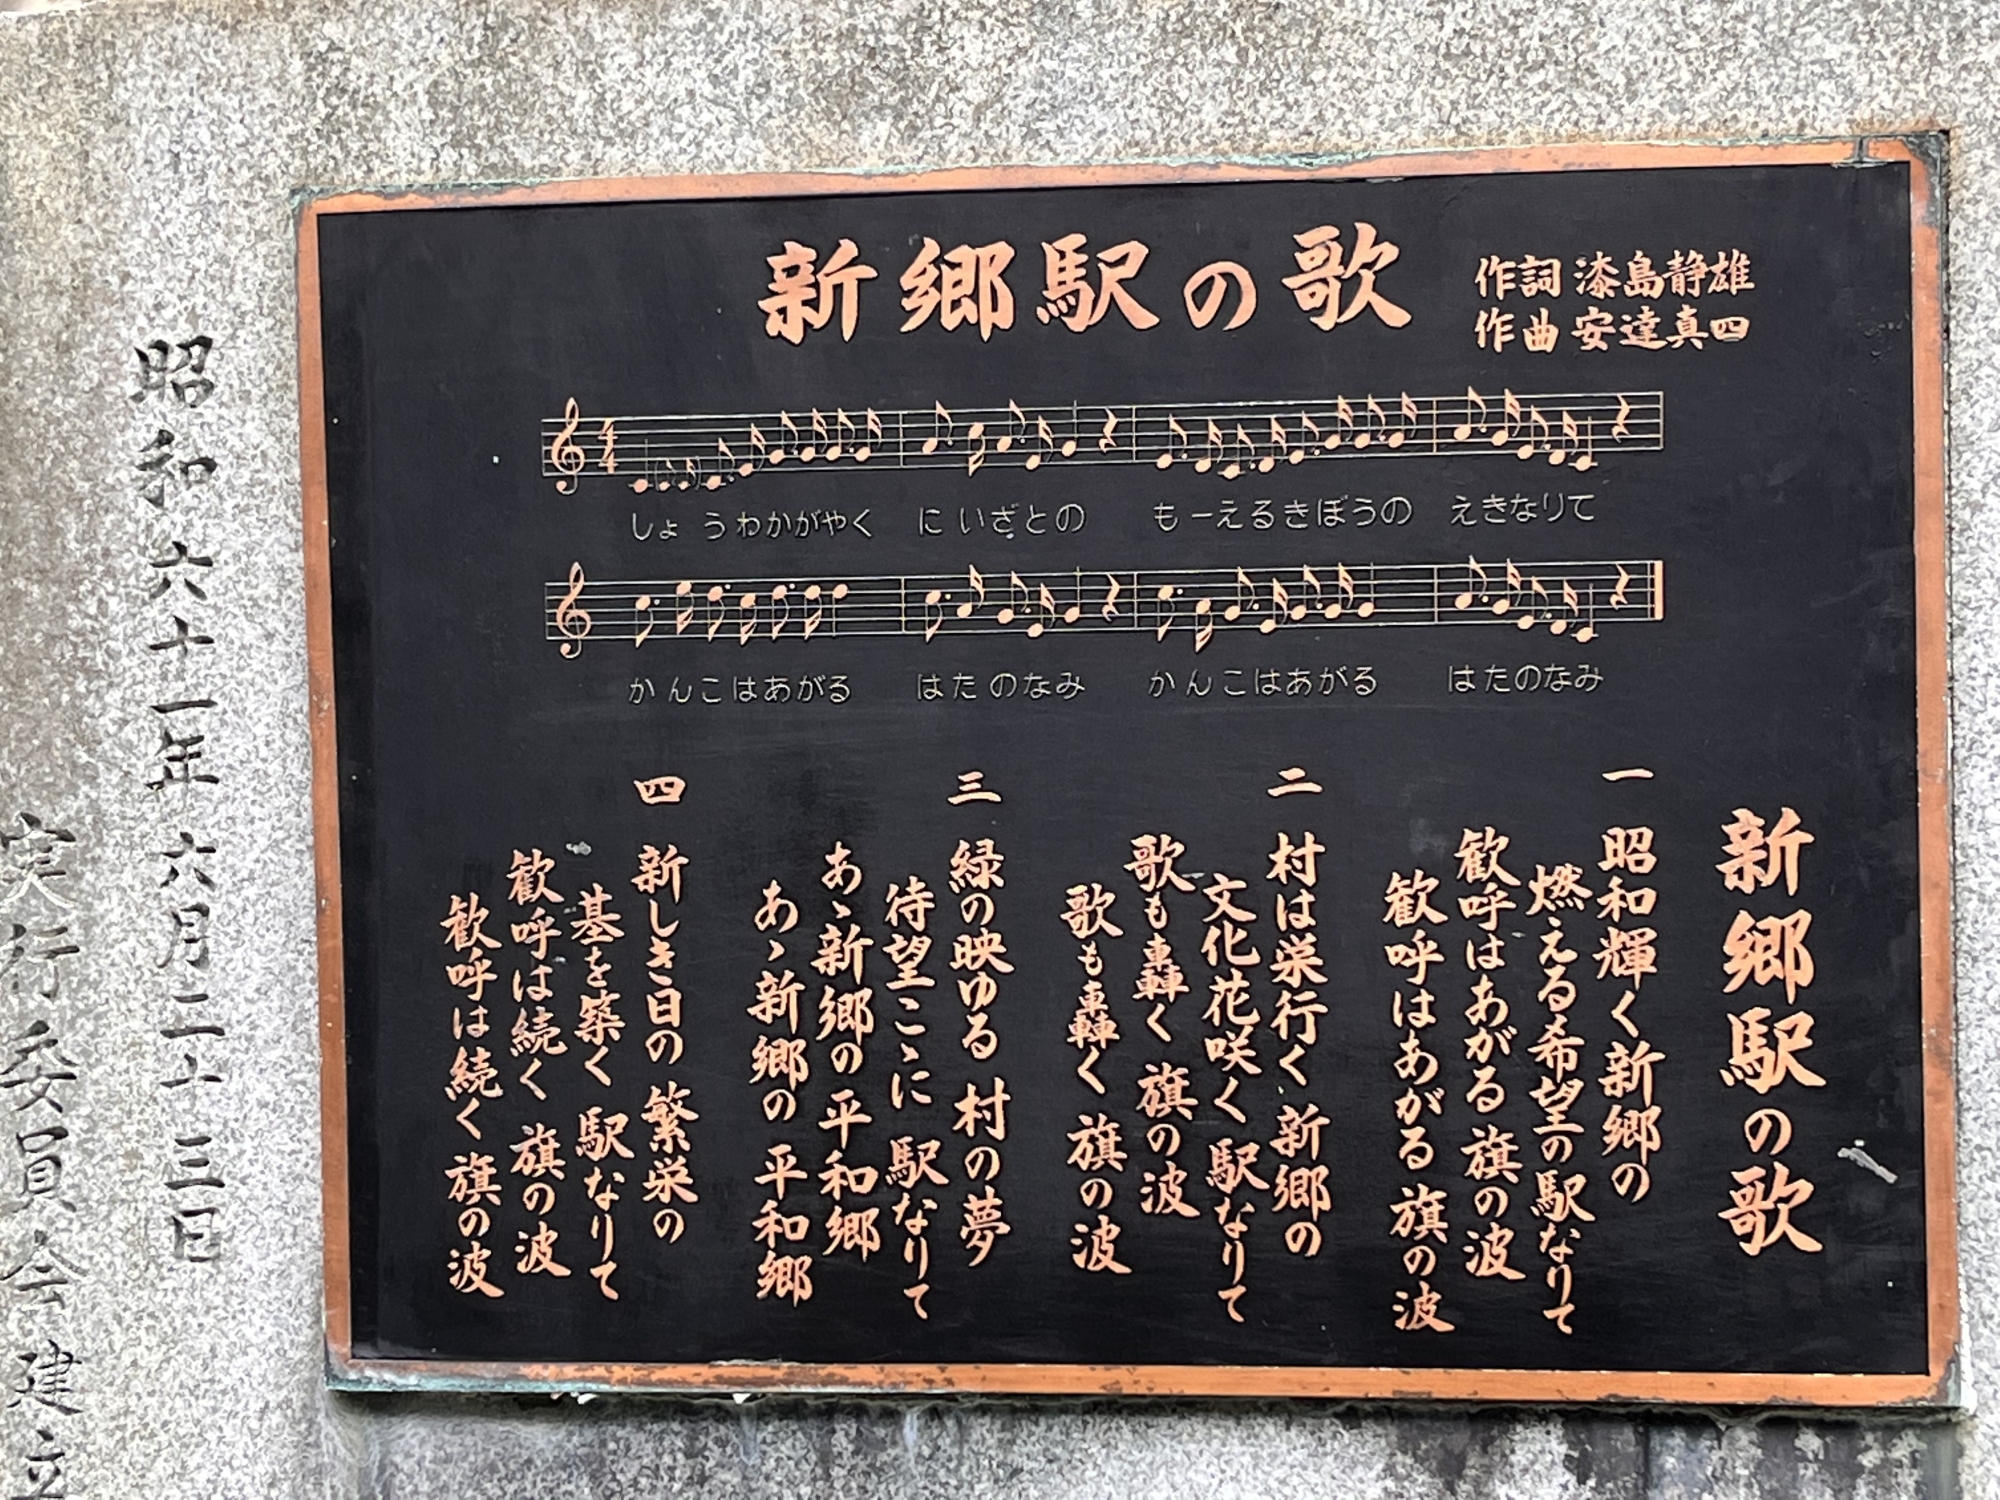 新郷駅の歌
作詞 漆島静雄
作曲 安達真四
しょうわかがやく にいざとの もーえるきぼうの えきなりて
かんこはあがる はたのなみ かんこはあがる はたのなみ
新郷駅の歌
一 昭和輝く新郷の
燃える希望の駅なりて
歓呼はあがる 旗の波
歓呼はあがる 旗の波
二 村は栄行く 新郷の
文化花咲く 駅なりて
歌も轟く 旗の波
歌も轟く 旗の波
三 緑の映ゆる 村の夢
待望こゝに 駅なりて
あゝ新郷の 平和郷
あゝ新郷の 平和郷
四 新しき日の 繁栄の
基を築く 駅なりて
歓呼は続く 旗の波
歓呼は続く 旗の波
昭和六十一年 六月二十三日
実行委員会建立